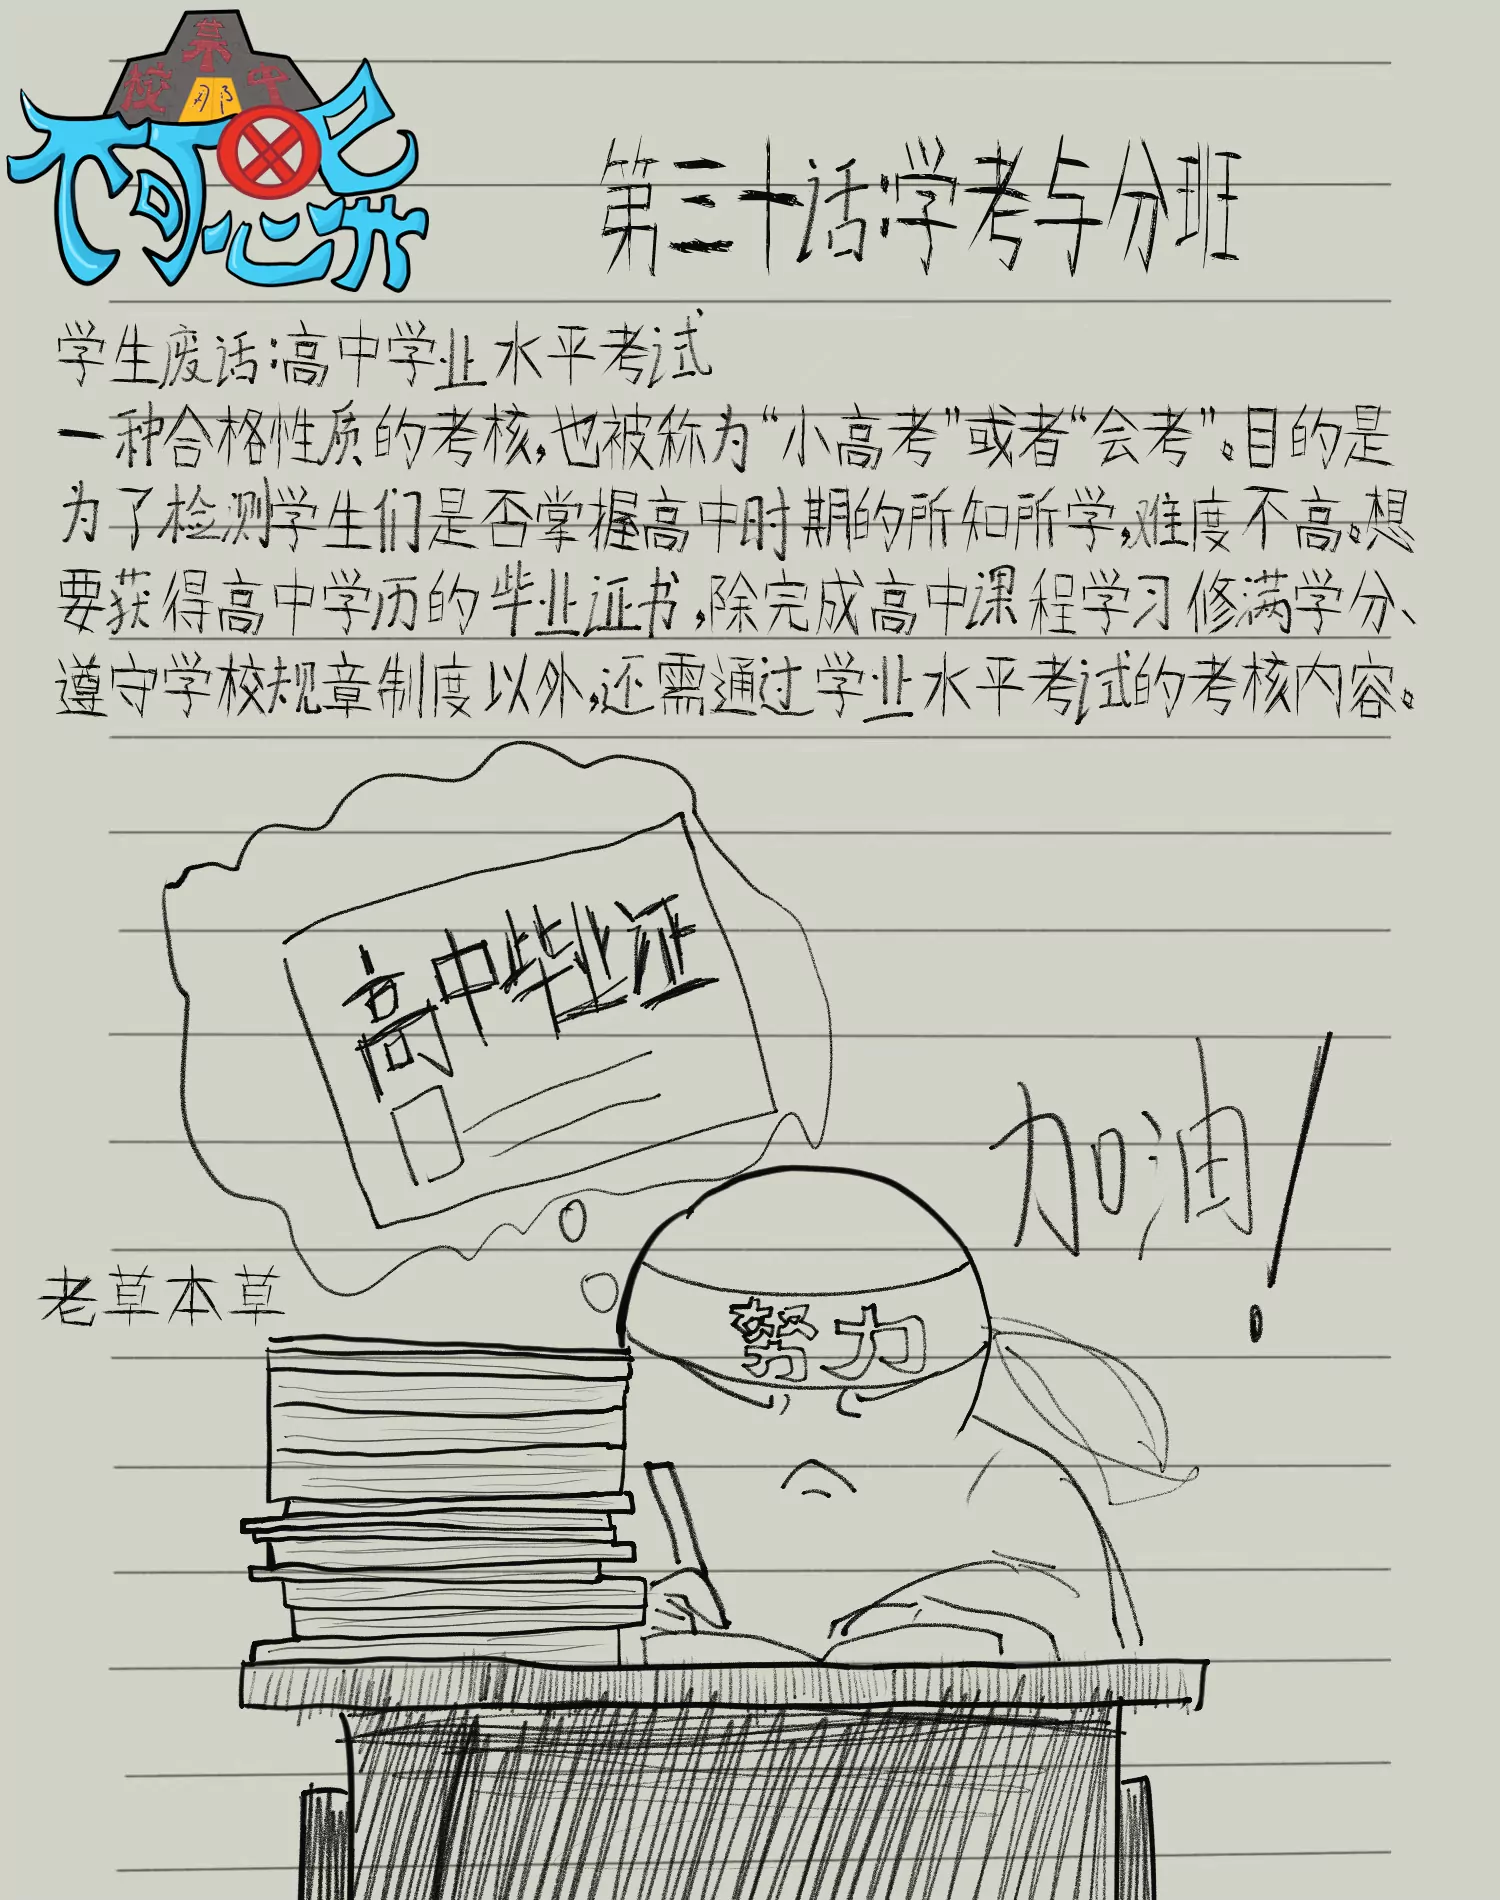 禁
校 中
那
不可思异
第三十话:学考与分班
学生废话:高中学业水平考试
一种合格性质的考核,也被称为“小高考”或者“会考”。目的是
为了检测学生们是否掌握高中时期的所知所学,难度不高。想
要获得高中学历的毕业证书,除完成高中课程学习修满学分、
遵守学校规章制度以外,还需通过学业水平考试的考核内容。
高中毕业证
加油!
老草本草
努力